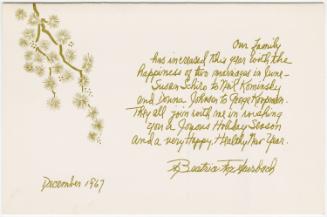 Our family
has increased this year with the
happiness of two marriages in June-
Susan Schiro to Neil Kominsky
and Donna Johnson to George
They all join with me in wishing
you a Joyous Holiday Season
and a very Happy, Healthy New Year.
Beatrice Fox Auerbach
December 1967